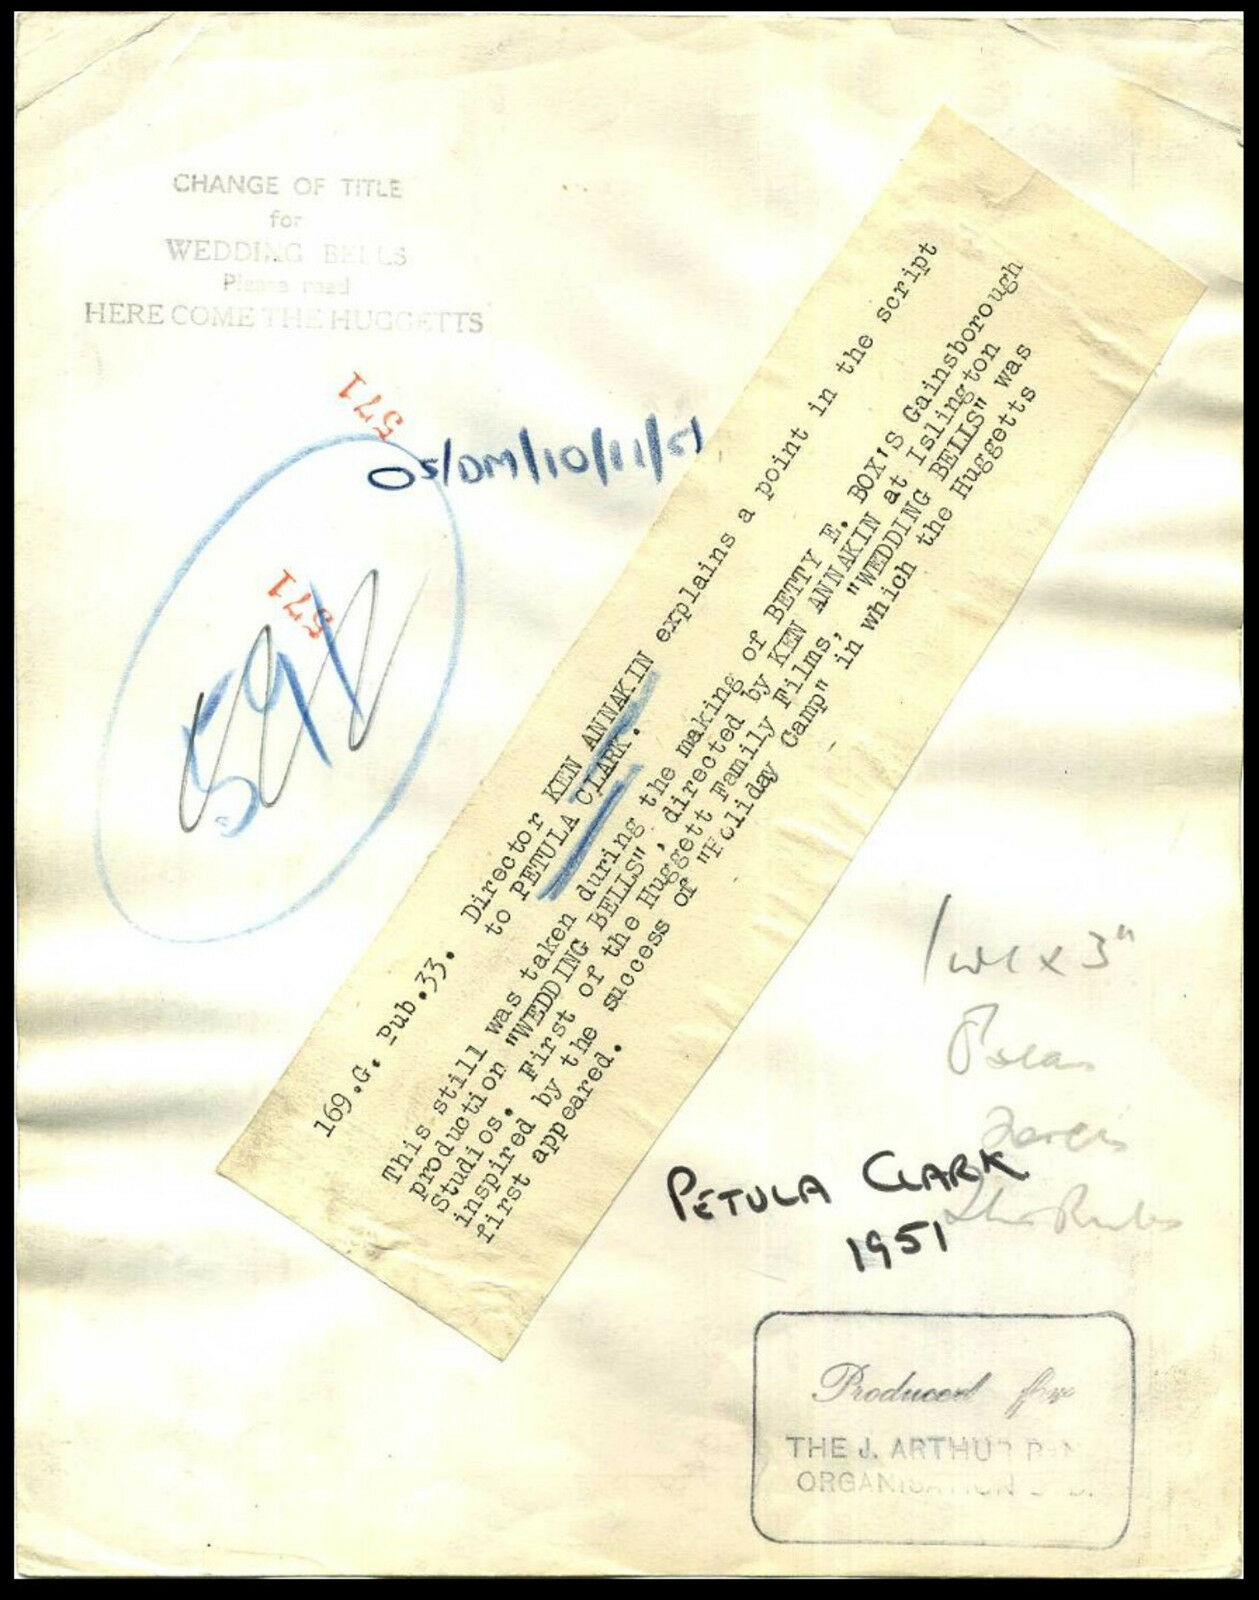 CHANGE OF TITLE
for
WEDDING BELLS
Please read
HERE COME THE HUGGETTS
571
OS/DM/10/11/51
571
591
169.G. Pub.33. Director KEN ANNAKIN explains a point in the script
to PETULA CLARK.
This still was taken during the making of BETTY E. BOX'S Gainsborough
production "WEDDING BELLS", directed by KEN ANNAKIN at Islington
Studios. First of the Huggett Family Films, "WEDDING BELLS" was
inspired by the success of "Holiday Camp" in which the Huggetts
first appeared.
x 3"
PETULA CLARK
1951
Produced for
THE J. ARTHUR
ORGANISATION